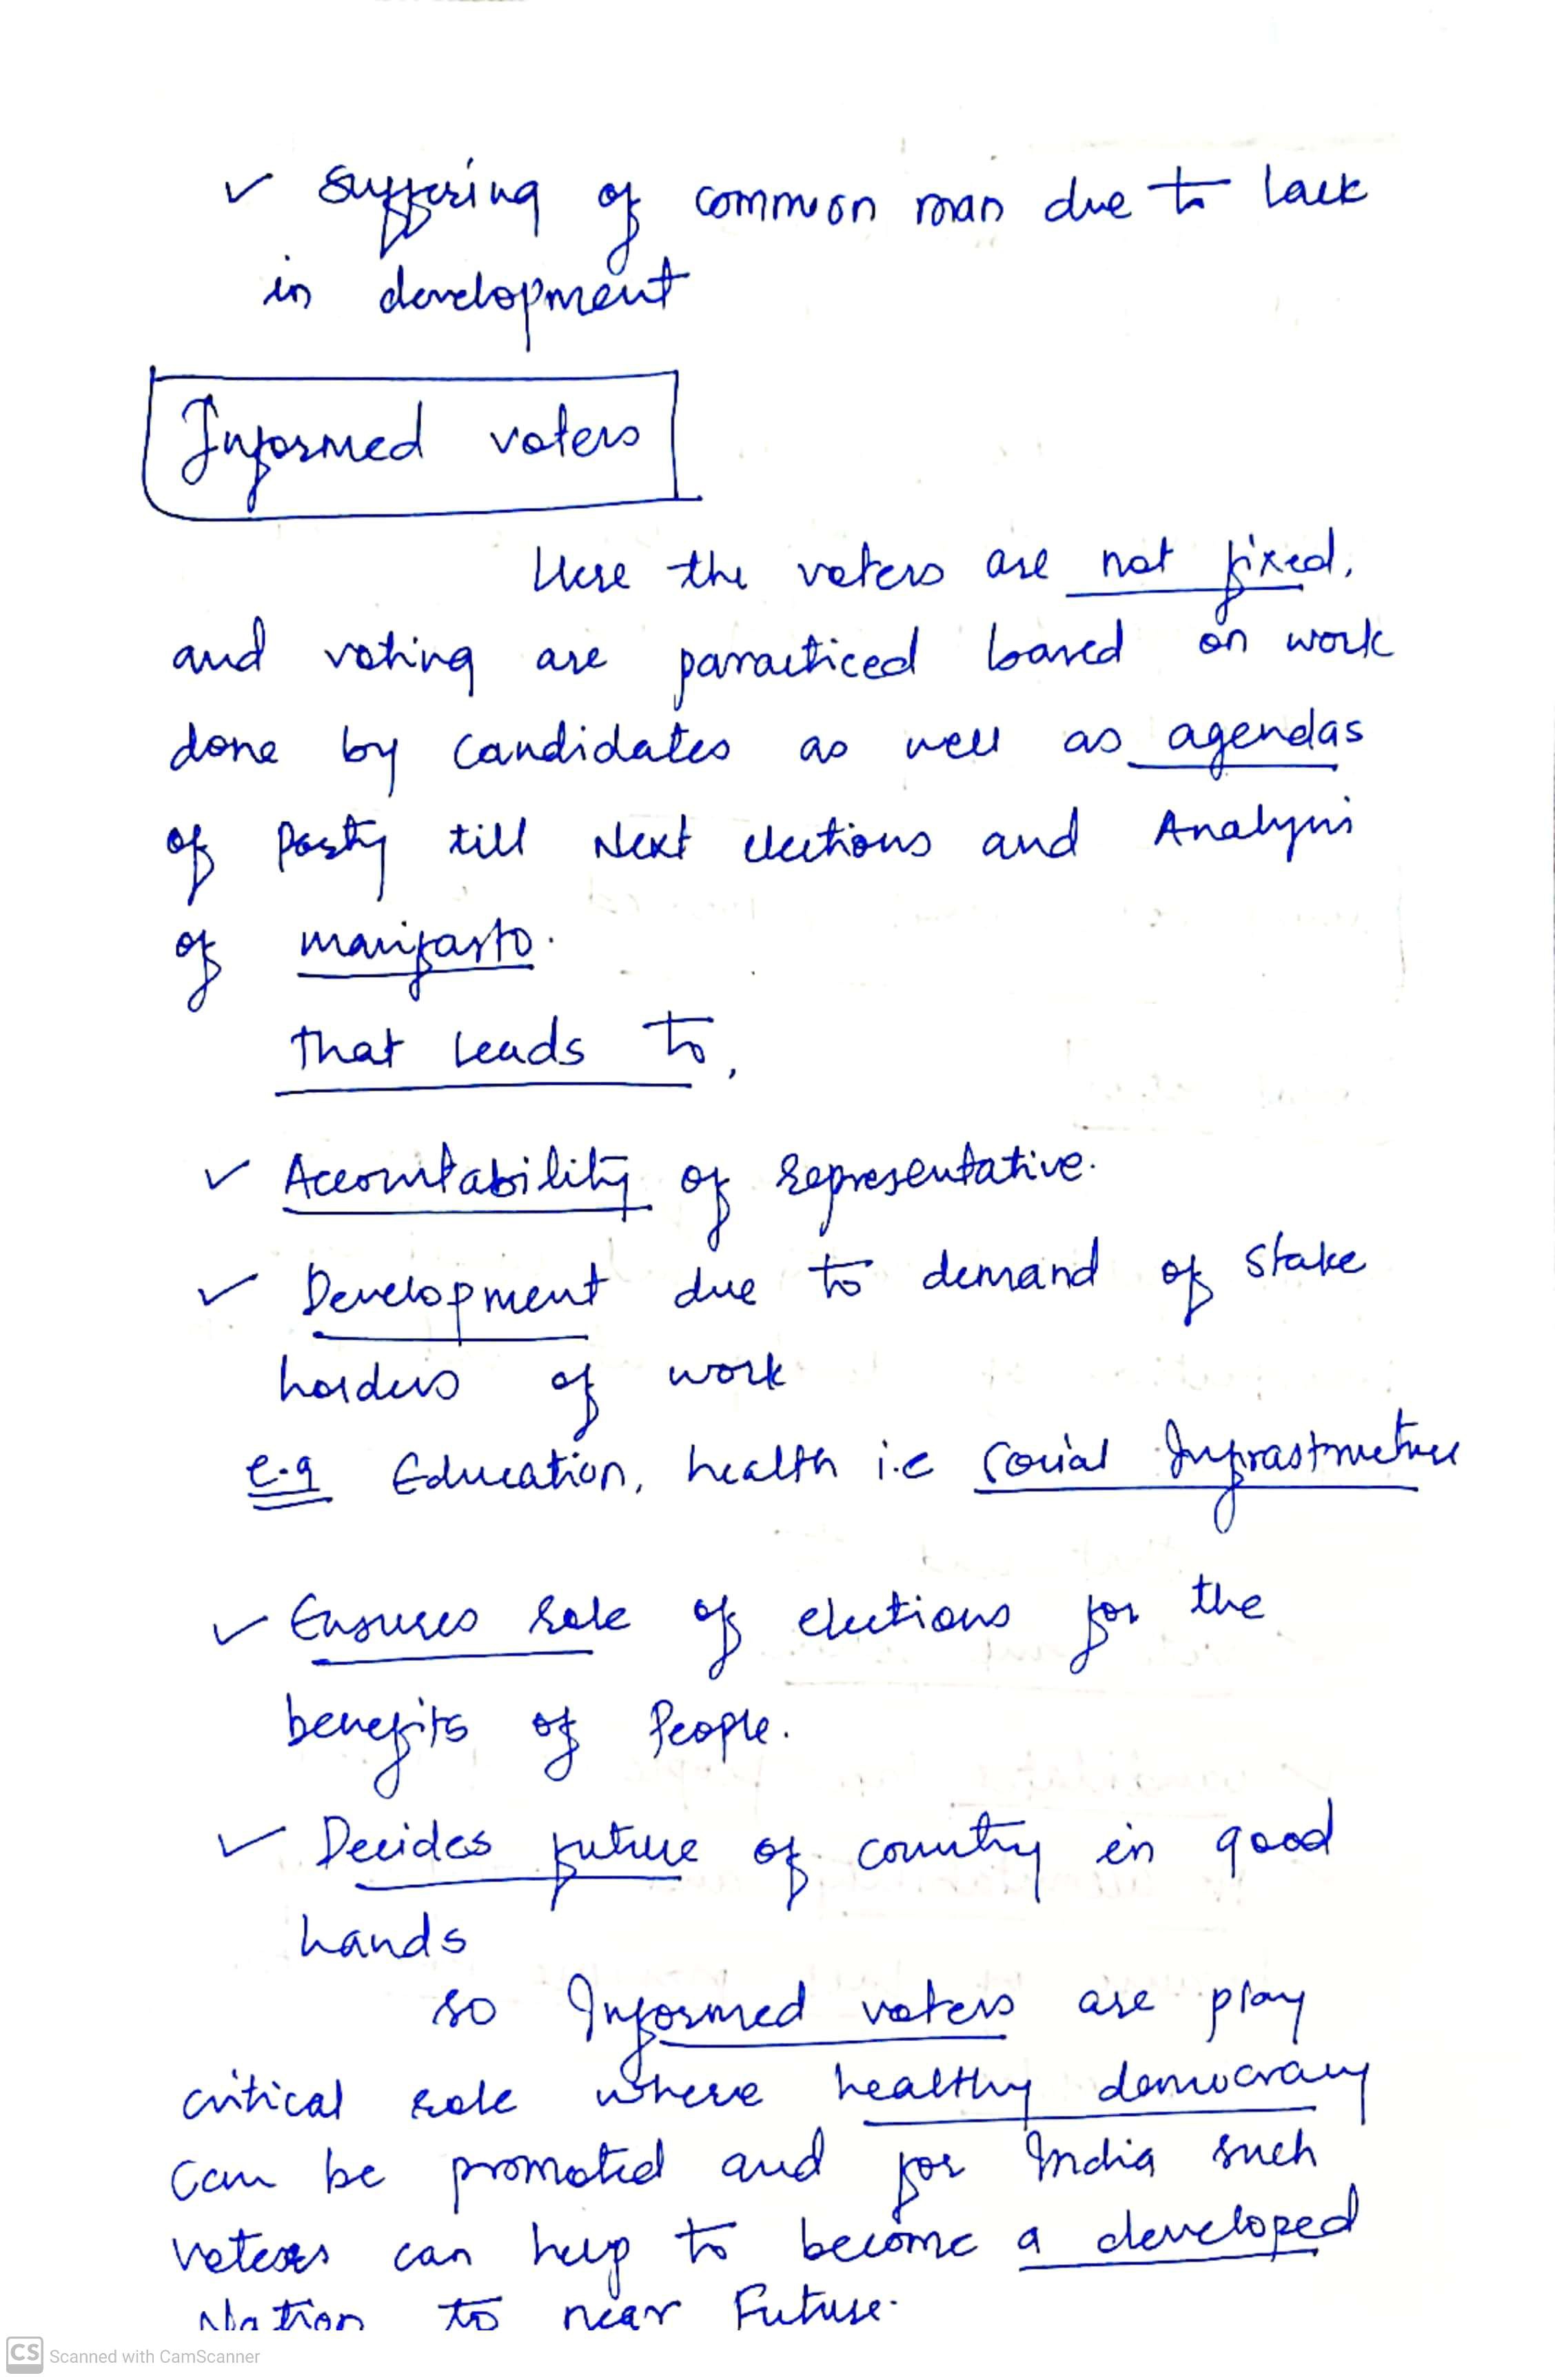 ✓ Suffering of common man due to lack
in development
Informed voters
Here the voters are not fixed,
and voting are parracticed based on work
done by candidates as well as agendas
of Party till Next elections and Analysis
of manifasto.
That leads to,
✓ Accountability of representative.
✓ Development due to demand of stake
holders of work
e.g Education, health i.e social Infrastructure
✓ Ensures role of elections for the
benefits of People.
✓ Decides future of country in good
hands
so Informed voters are play
critical role where healthy democracy
can be promoted and for India such
voters can help to become a developed
Nation to near Future.
CS Scanned with CamScanner